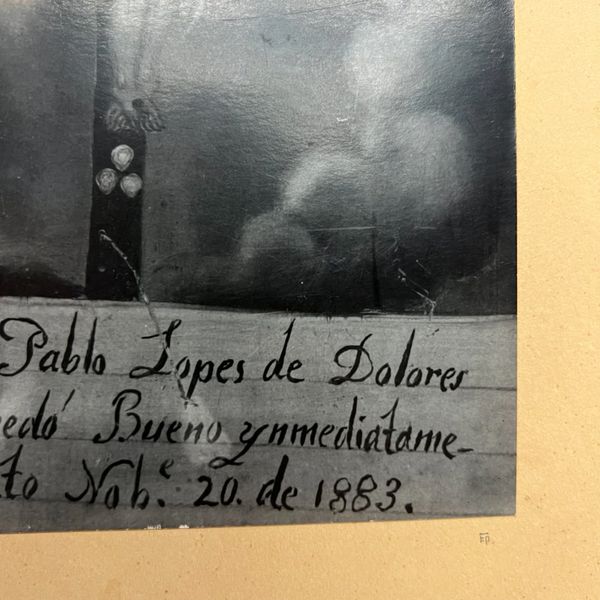 Pablo Lopes de Dolores
edó Bueno ynmediatame-
to Nobᵉ. 20. de 1883.